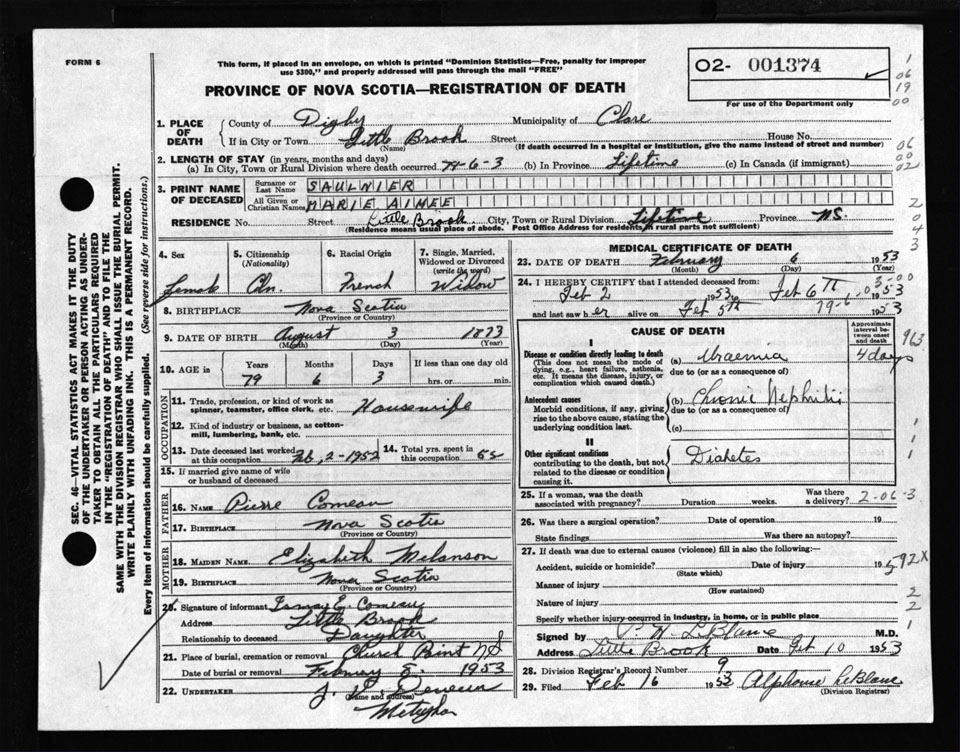 FORM 6
This form, if placed in an envelope, on which is printed "Dominion Statistics—Free, penalty for improper
use $300," and properly addressed will pass through the mail "FREE"
O2- 001374
For use of the Department only
PROVINCE OF NOVA SCOTIA—REGISTRATION OF DEATH
1. PLACE OF DEATH
County of Digby Municipality of Clare
If in City or Town Little Brook Street House No.
(Name) (If death occurred in a hospital or institution, give the name instead of street and number)
2. LENGTH OF STAY (in years, months and days)
(a) In City, Town or Rural Division where death occurred 79-6-3 (b) In Province Lifetime (c) In Canada (if immigrant)
3. PRINT NAME OF DECEASED
Surname or Last Name SAULNIER
All Given or Christian Names MARIE AIMEE
RESIDENCE No. Street Little Brook City, Town or Rural Division Lifetime Province N.S.
(Residence means usual place of abode. Post Office Address for residents in rural parts not sufficient)
4. Sex
Female
5. Citizenship
(Nationality)
Cdn.
6. Racial Origin
French
7. Single, Married,
Widowed or Divorced
(write the word)
Widow
8. BIRTHPLACE Nova Scotia
(Province or Country)
9. DATE OF BIRTH August 3 1873
(Month) (Day) (Year)
10. AGE in Years Months Days If less than one day old
79 6 3 hrs. or min.
OCCUPATION
11. Trade, profession, or kind of work as
spinner, teamster, office clerk. etc. Housewife
12. Kind of industry or business, as cotten-
mill, lumbering, bank, etc.
13. Date deceased last worked
at this occupation Feb, 2-1952
14. Total yrs. spent in
this occupation
15. If married give name of wife
or husband of deceased
FATHER
16. NAME Pierre Comeau
17. BIRTHPLACE Nova Scotia
(Province or Country)
MOTHER
18. MAIDEN NAME Elizabeth Melanson
19. BIRTHPLACE Nova Scotia
(Province or Country)
20. Signature of informant E. Comeau
Address Little Brook
Relationship to deceased Daughter
21. Place of burial, cremation or removal Church Point NS
Date of burial or removal February 1953
22. UNDERTAKER J.
(Name and address)
Meteghan
MEDICAL CERTIFICATE OF DEATH
23. DATE OF DEATH February 6 1953
(Month) (Day) (Year)
24. I HEREBY CERTIFY that I attended deceased from:
Feb 2 1953 to Feb 6th 1953
and last saw her alive on Feb 5th 1953
79-6-03-00
CAUSE OF DEATH
Approximate
interval be-
tween onset
and death
I
Disease or condition directly leading to death
(This does not mean the mode of
dying, e.g., heart failure, asthenia,
etc. It means the disease, injury, or
complication which caused death.)
(a) Uraemia 4 days
due to (or as a consequence of)
Antecedent causes
Morbid conditions, if any, giving
rise to the above cause, stating the
underlying condition last.
(b) Chronic Nephritis
due to (or as a consequence of)
(c)
II
Other significant conditions
contributing to the death, but not
related to the disease or condition
causing it.
Diabetes
25. If a woman, was the death
associated with pregnancy? Duration weeks. Was there
a delivery? 2-06-3
26. Was there a surgical operation? Date of operation 19
State findings Was there an autopsy?
27. If death was due to external causes (violence) fill in also the following:—
Accident, suicide or homicide? Date of injury 19
(State which)
592X
Manner of injury
(How sustained)
Nature of injury
Specify whether injury occurred in industry, in home, or in public place
Signed by P. H. LeBlanc M.D.
Address Little Brook Date Feb 10 1953
28. Division Registrar's Record Number 9
29. Filed Feb 16 1953 Alphonse LeBlanc
(Division Registrar)
SEC. 46—VITAL STATISTICS ACT MAKES IT THE DUTY
OF THE UNDERTAKER OR PERSON ACTING AS UNDER-
TAKER TO OBTAIN ALL THE PARTICULARS REQUIRED
IN THE "REGISTRATION OF DEATH" AND TO FILE THE
SAME WITH THE DIVISION REGISTRAR WHO SHALL ISSUE THE BURIAL PERMIT.
WRITE PLAINLY WITH UNFADING INK. THIS IS A PERMANENT RECORD.
Every item of information should be carefully supplied. (See reverse side for instructions.)
1
06
19
00
06
00
02
2
0
4
3
963
1
1
1
2
2
1